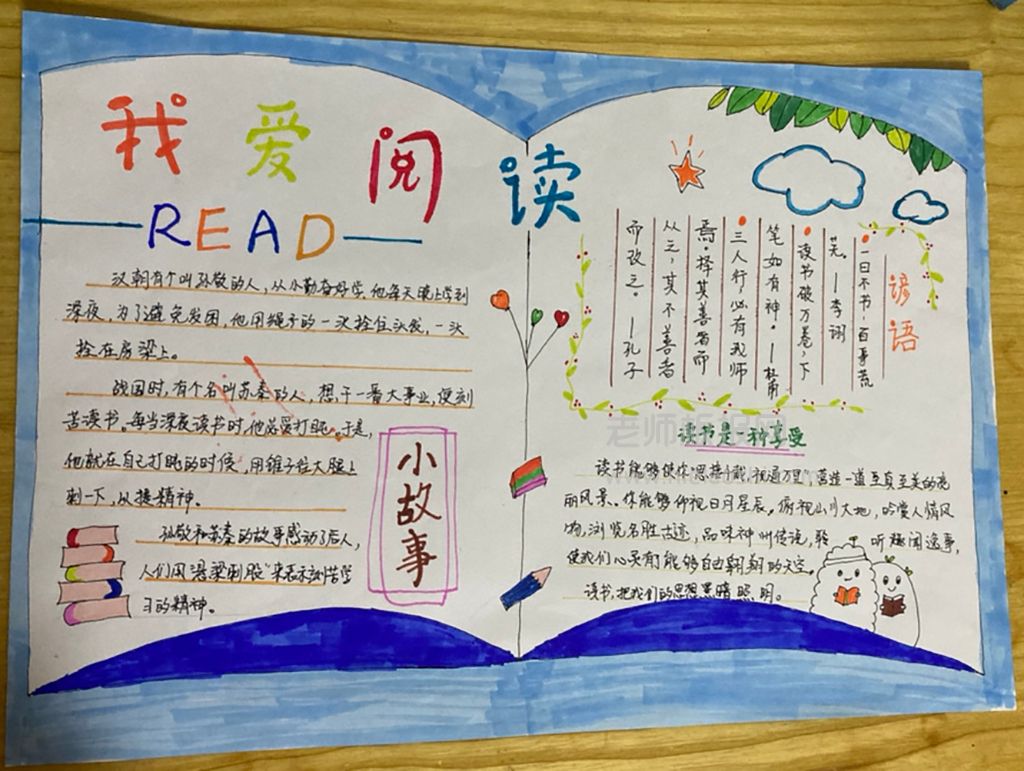 我爱阅读
READ
汉朝有个叫孙敬的人，从小勤奋好学，他每天晚上学到
深夜，为了避免发困，他用绳子的一头拴住头发，一头
拴在房梁上。
战国时，有个名叫苏秦的人，想干一番大事业，便刻
苦读书。每当深夜读书时，他总爱打盹。于是，
他就在自己打盹的时候，用锥子往大腿上
刺一下，以提精神。
孙敬和苏秦的故事感动了后人，
人们用"悬梁刺股"来表示刻苦学
习的精神。
小故事
谚语
一日不书，百事荒
芜。—李诩
读书破万卷，下
笔如有神。—杜甫
三人行，必有我师
焉。择其善者而
从之，其不善者
而改之。—孔子
老师
读书是一种享受
读书能够使你"思接千载，视通万里"营造一道至真至美的亮
丽风景。你能够仰视日月星辰，俯视山川大地，吟赏人情风
物，浏览名胜古迹，品味神州传说，聆听趣闻逸事，
使我们心灵有能够自由翱翔的天空。
读书，把我们的思想黑暗照明。